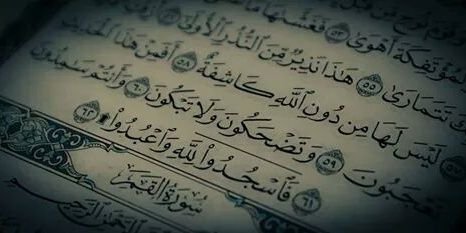 وَقَوْمَ نُوحٍ مِّن
وَٱلْمُؤْتَفِكَةَ أَهْوَىٰ ٥٣ فَغَشَّىٰهَا مَا
تَتَمَارَىٰ ٥٥ هَٰذَا نَذِيرٌ مِّنَ ٱلنُّذُرِ ٱلْأُولَىٰ
لَيْسَ لَهَا مِن دُونِ ٱللَّهِ كَاشِفَةٌ ٥٨ أَفَمِنْ هَٰذَا ٱلْحَدِيثِ
تَعْجَبُونَ ٥٩ وَتَضْحَكُونَ وَلَا تَبْكُونَ ٦٠ وَأَنتُمْ سَٰمِدُونَ
٦١ فَٱسْجُدُوا۟ لِلَّهِ وَٱعْبُدُوا۟ ۩ ٦٢
سُورَةُ القَمَرِ
ٱلرَّحْمَٰنِ ٱلرَّحِيمِ